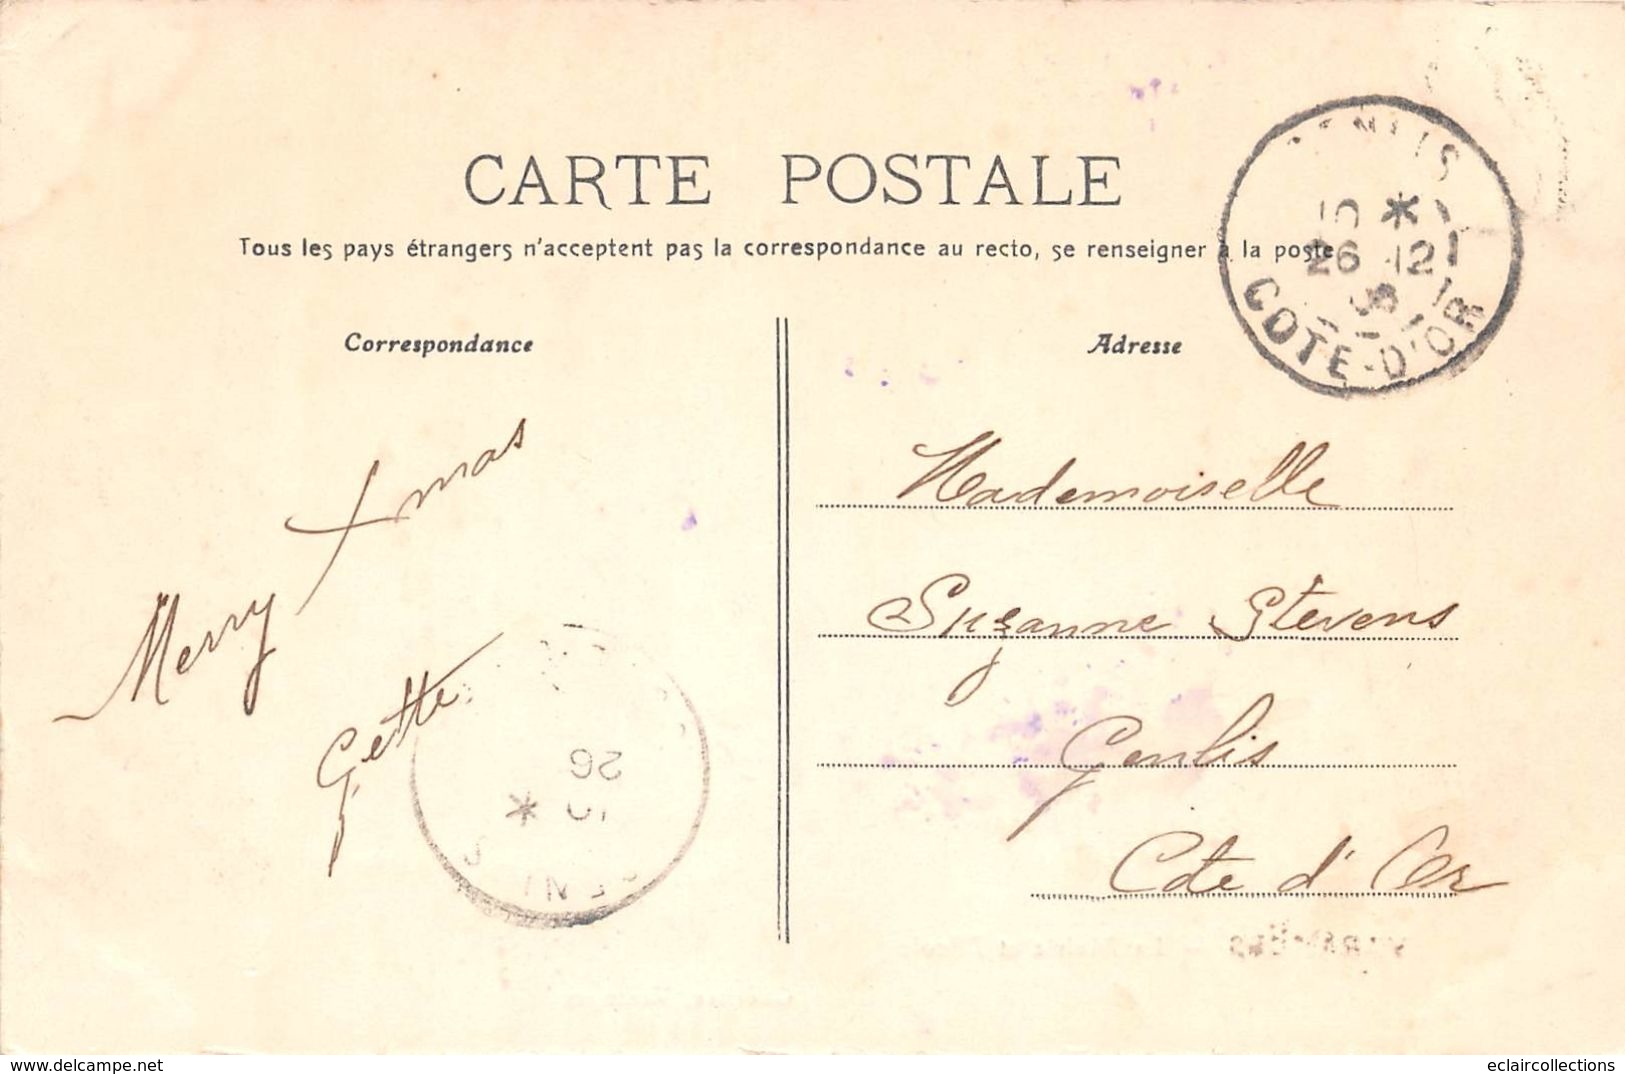 CARTE POSTALE
Tous les pays étrangers n'acceptent pas la correspondance au recto, se renseigner à la poste
26 12
COTE-D'OR
Correspondance
Adresse
Merry Xmas
Gette
26
Mademoiselle
Suzanne Stevens
Genlis
Cote d'Or
www.delcampe.net
eclaircollections